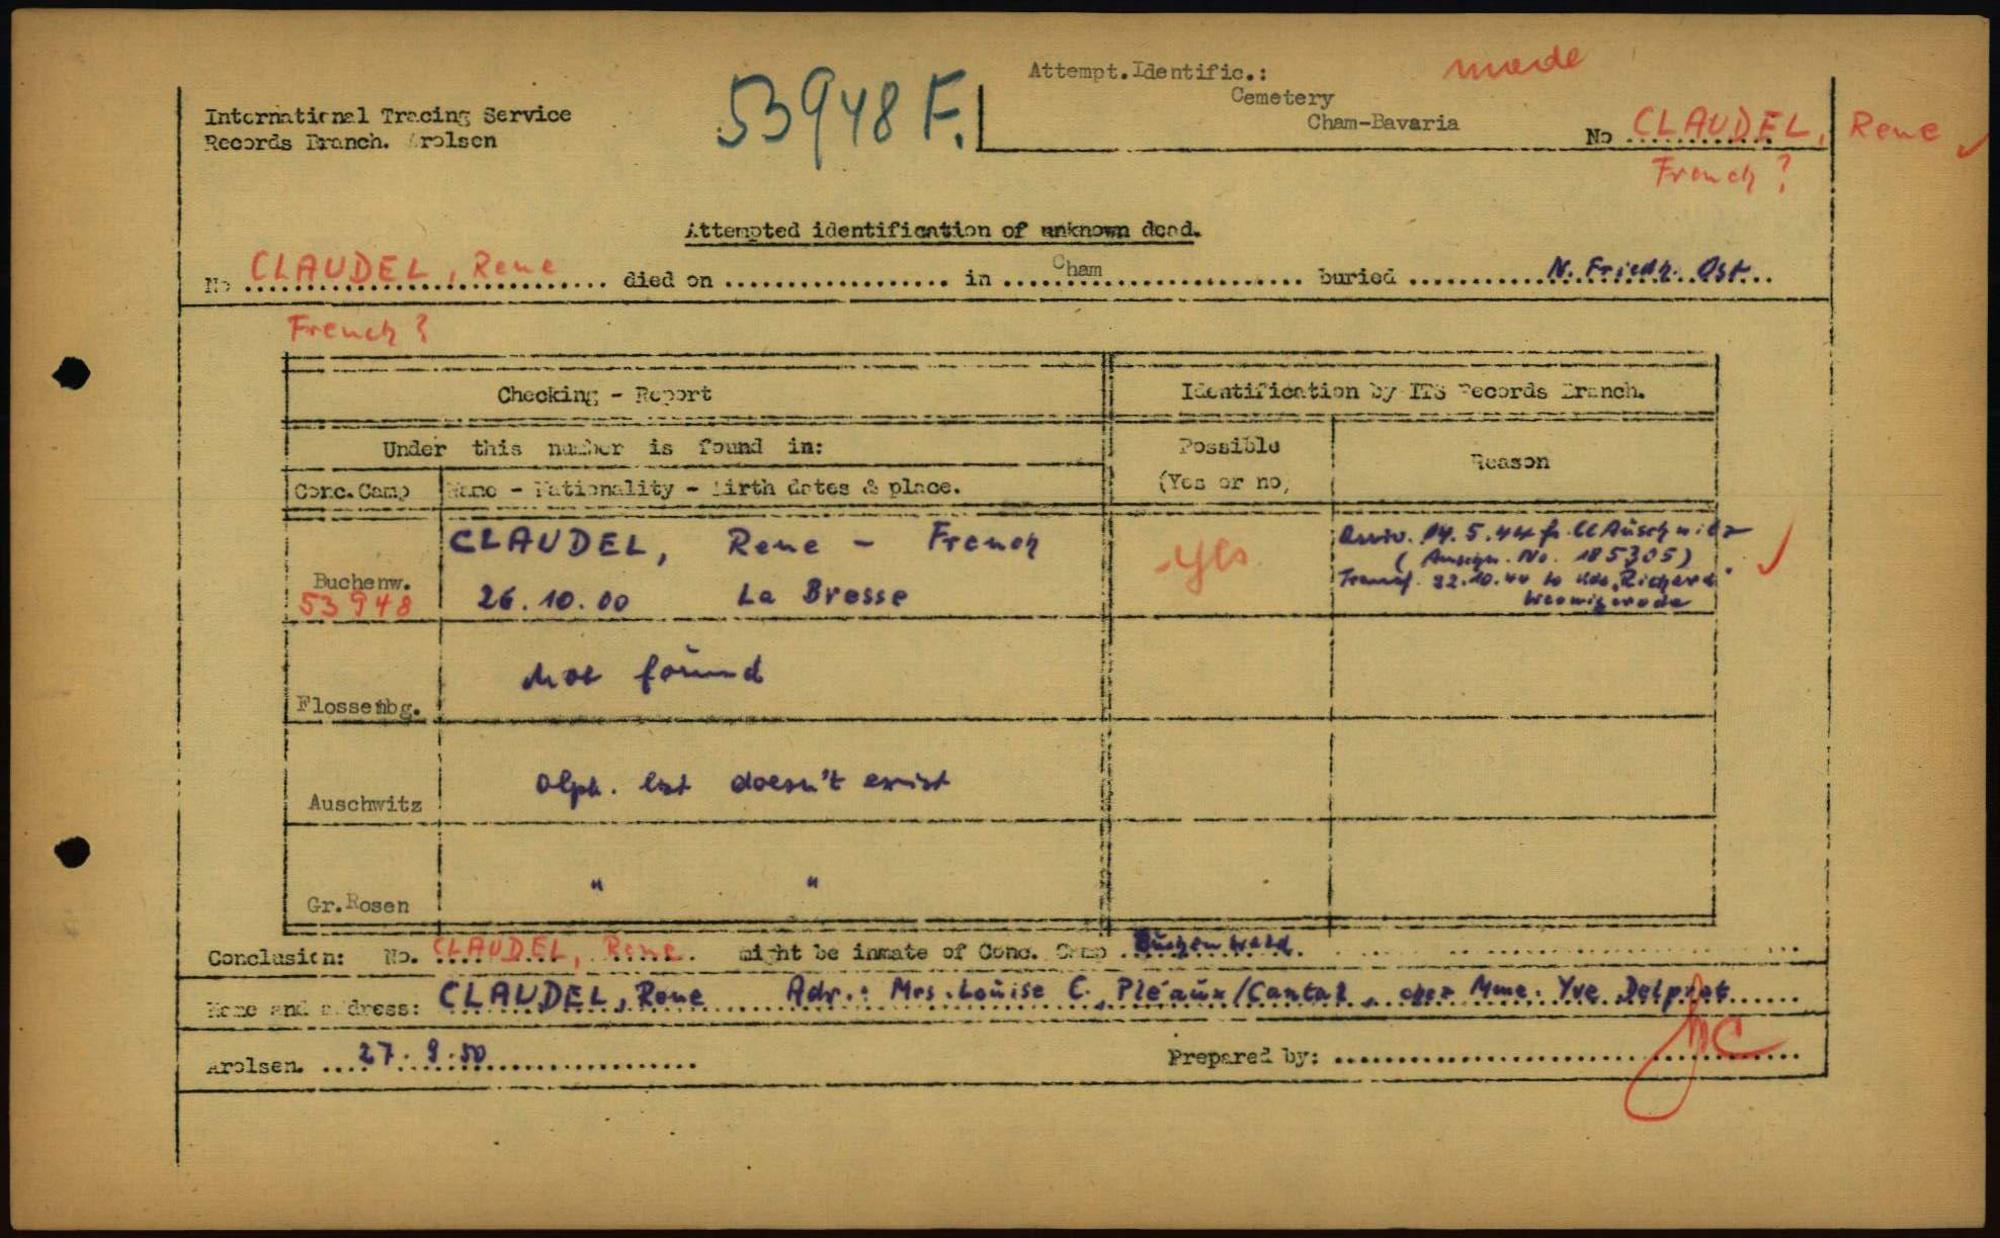 53948 F.
Attempt.Identific.:
made
Cemetery
Cham-Bavaria
International Tracing Service
Records Branch. Arolsen
No CLAUDEL, Rene
French?
Attempted identification of unknown dead.
No CLAUDEL, Rene died on .................. in Cham buried N. Friedh. Ost
French?
Checking - Report
Identification by ITS Records Branch.
Under this number is found in:
Possible
(Yes or no)
Reason
Conc.Camp
Name - Nationality - Birth dates & place.
CLAUDEL, Rene - French
26.10.00 La Bresse
Buchenw.
53948
yes
Arriv. 14.5.44 fr. CC Auschwitz
No. 185305)
Transf. 22.10.44 to Kdo. "Richard"
Wernigerode
Not found
Flossenbg.
alph. list doesn't exist
Auschwitz
" "
Gr.Rosen
Conclusion: No. CLAUDEL, Rene might be inmate of Conc. Camp Buchenwald
Name and address: CLAUDEL, Rene Adr.: Mrs. Louise C. Pléaux/Cantal, chez Mme. Yve Delprat
Arolsen. 27.9.50 Prepared by: